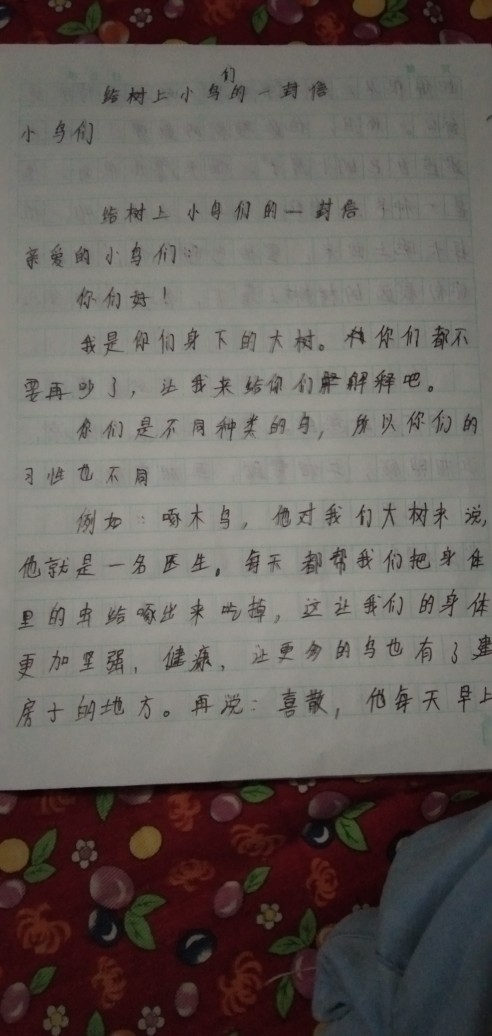 给树上小鸟们的一封信
小鸟们
给树上小鸟们的一封信
亲爱的小鸟们：
你们好！
我是你们身下的大树。你们都不
要再吵了，让我来给你们解释吧。
你们是不同种类的鸟，所以你们的
习性也不同
例如：啄木鸟，他对我们大树来说，
他就是一名医生。每天都帮我们把身体
里的虫给啄出来吃掉，这让我们的身体
更加坚强、健康，让更多的鸟也有了建
房子的地方。再说：喜散，他每天早上